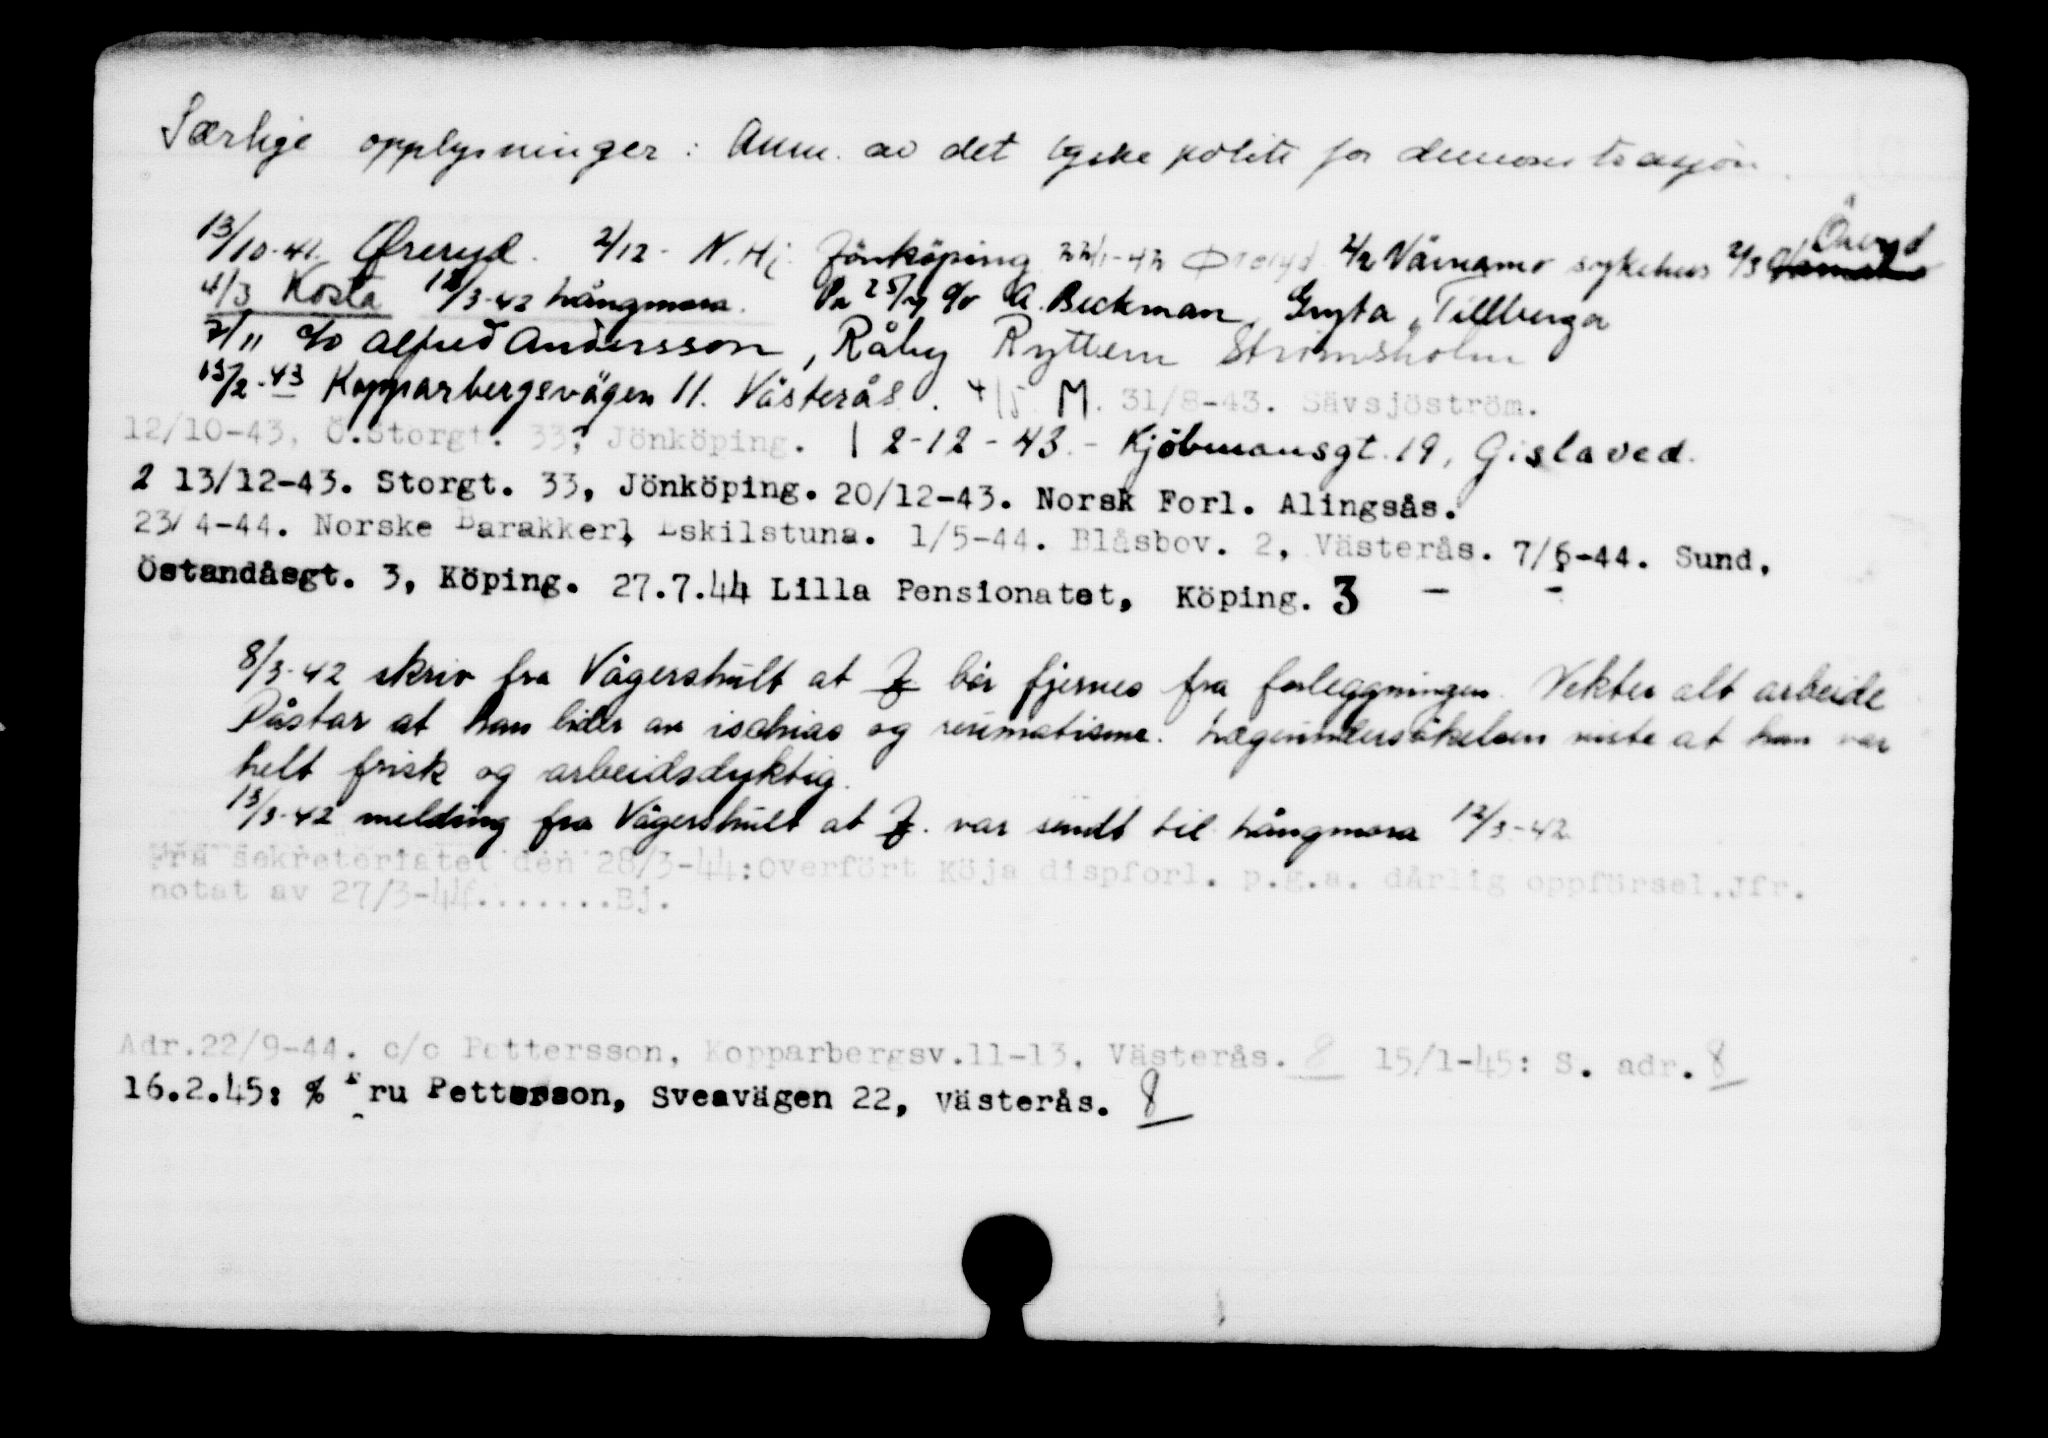 Særlige opplysninger: Anm. av det tyske politi for demonstrasjon.
13/10-41. Øreryd. 2/12- N.Hj. Jönköping 22/1-42 Øreryd 2/2 Värnamo sykehus 2/3 Öreryd
4/3 Kosta 12/3-42 Långmora. Pr 25/7 c/o A. Beckman, Gryta, Tillberga
7/11 c/o Alfred Andersson, Råby Ryttern Strömsholm
15/2-43 Kopparbergsvägen 11. Västerås. 4/5 M. 31/8-43. Sävsjöström.
12/10-43, Ö.Storgt. 33, Jönköping. 1 2-12-43.- Kjöbmansgt. 19, Gislaved.
2 13/12-43. Storgt. 33, Jönköping. 20/12-43. Norsk Forl. Alingsås.
23/4-44. Norske Barakker, Eskilstuna. 1/5-44. Blåsbov. 2, Västerås. 7/6-44. Sund,
Östandåsgt. 3, Köping. 27.7.44 Lilla Pensionatet, Köping. 3 - -
8/3-42 skriv fra Vågershult at J bör fjernes fra forleggningen. Vekter alt arbeide
Påstar at han lider av ischias og reumatisme. Lægeundersökelsen viste at han var
helt frisk og arbeidsdyktig.
13/3-42 melding fra Vågershult at J. var sendt til Långmora 12/3-42
Fra sekretariatet den 28/3-44: Overfört Köja dispforl. p.g.a. dårlig oppförsel. Jfr.
notat av 27/3-44.......Bj.
Adr.22/9-44. c/o Pettersson, Kopparbergsv.11-13, Västerås. 8 15/1-45: S. adr. 8
16.2.45: % Fru Pettersson, Sveavägen 22, Västerås. 8